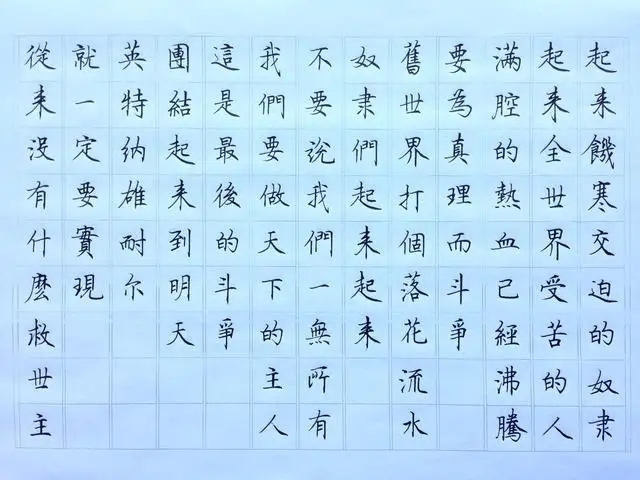 起来饑寒交迫的奴隶
起来全世界受苦的人
满腔的熱血已經沸騰
要為真理而斗爭
舊世界打個落花流水
奴隶們起来起来
不要说我們一無所有
我們要做天下的主人
這是最後的斗爭
團結起来到明天
英特納雄耐尔
就一定要實現
從来没有什麽救世主